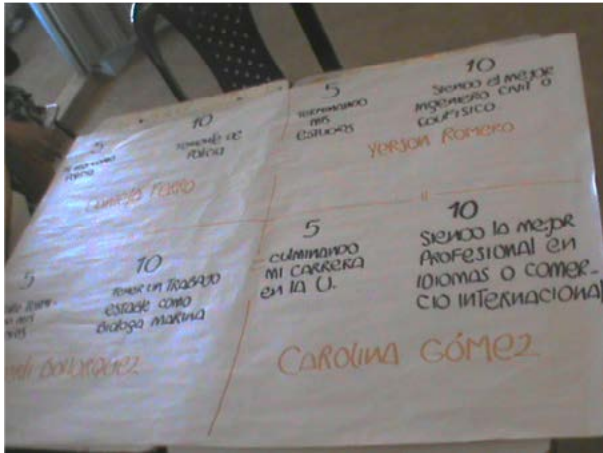 5
10
TENIENTE DE
POLICIA
5
TERMINANDO
MIS
ESTUDIOS
10
SIENDO EL MEJOR
INGENIERO CIVIL O
YERSON ROMERO
5
10
TENER UN TRABAJO
ESTABLE COMO
BIOLOGA MARINA
5
CULMINANDO
MI CARRERA
EN LA U.
10
SIENDO LA MEJOR
PROFESIONAL EN
IDIOMAS O COMER-
CIO INTERNACIONAL
CAROLINA GÓMEZ